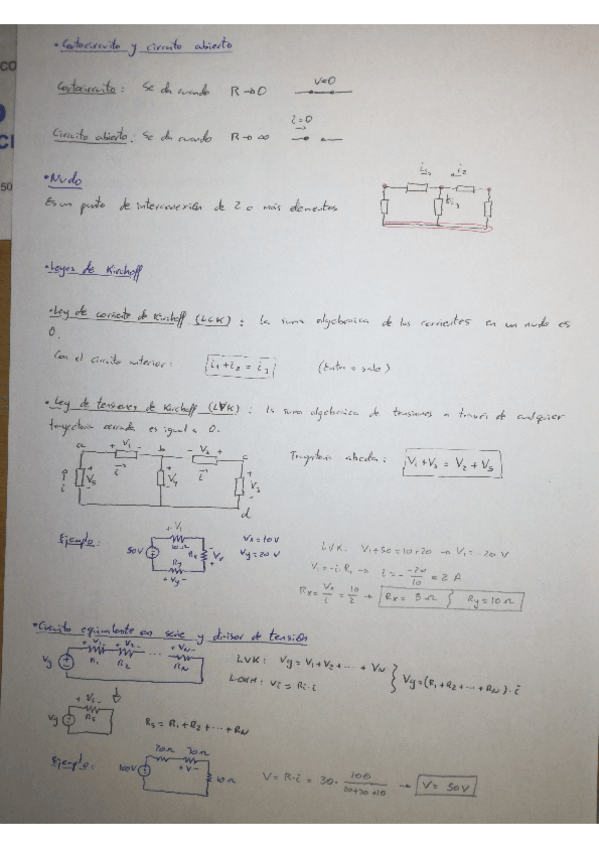 • Cortocircuito y circuito abierto
Cortocircuito: Se da cuando R→0 V=0
Circuito abierto: Se da cuando R→∞ i=0
• Nudo
Es un punto de interconexión de 2 o más elementos
i1 i2 i3
• Leyes de Kirchoff
• Ley de corriente de Kirchoff (LCK): la suma algebraica de las corrientes en un nudo es
0.
Con el circuito anterior: i1+i2=i3 (Entra = sale)
• Ley de tensiones de Kirchoff (LVK): la suma algebraica de tensiones a través de cualquier
trayectoria cerrada es igual a 0.
a + V1 - b c
i i i d
Trayectoria abcda:
Ejemplo: 50V + V1 - 10Ω Rx Vx Ry + Vy -
Vx=10V
Vy=20V
LVK: V1+50=10+20 → V1=-20V
V1=-i·R1 → i=- -20/10 = 2 A
Rx= Vx/i = 10/2 → Rx = 5Ω } Ry=10Ω
• Circuito equivalente en serie y divisor de tensión
Vg R1 R2 ... RN
LVK: Vg=V1+V2+...+VN
LOHM: Vi=Ri·i
} Vg=(R1+R2+...+RN)·i
Vg Rs
Rs=R1+R2+...+RN
Ejemplo: 100V 30Ω + V - 10Ω
V=R·i=30· 100 → V= 50V